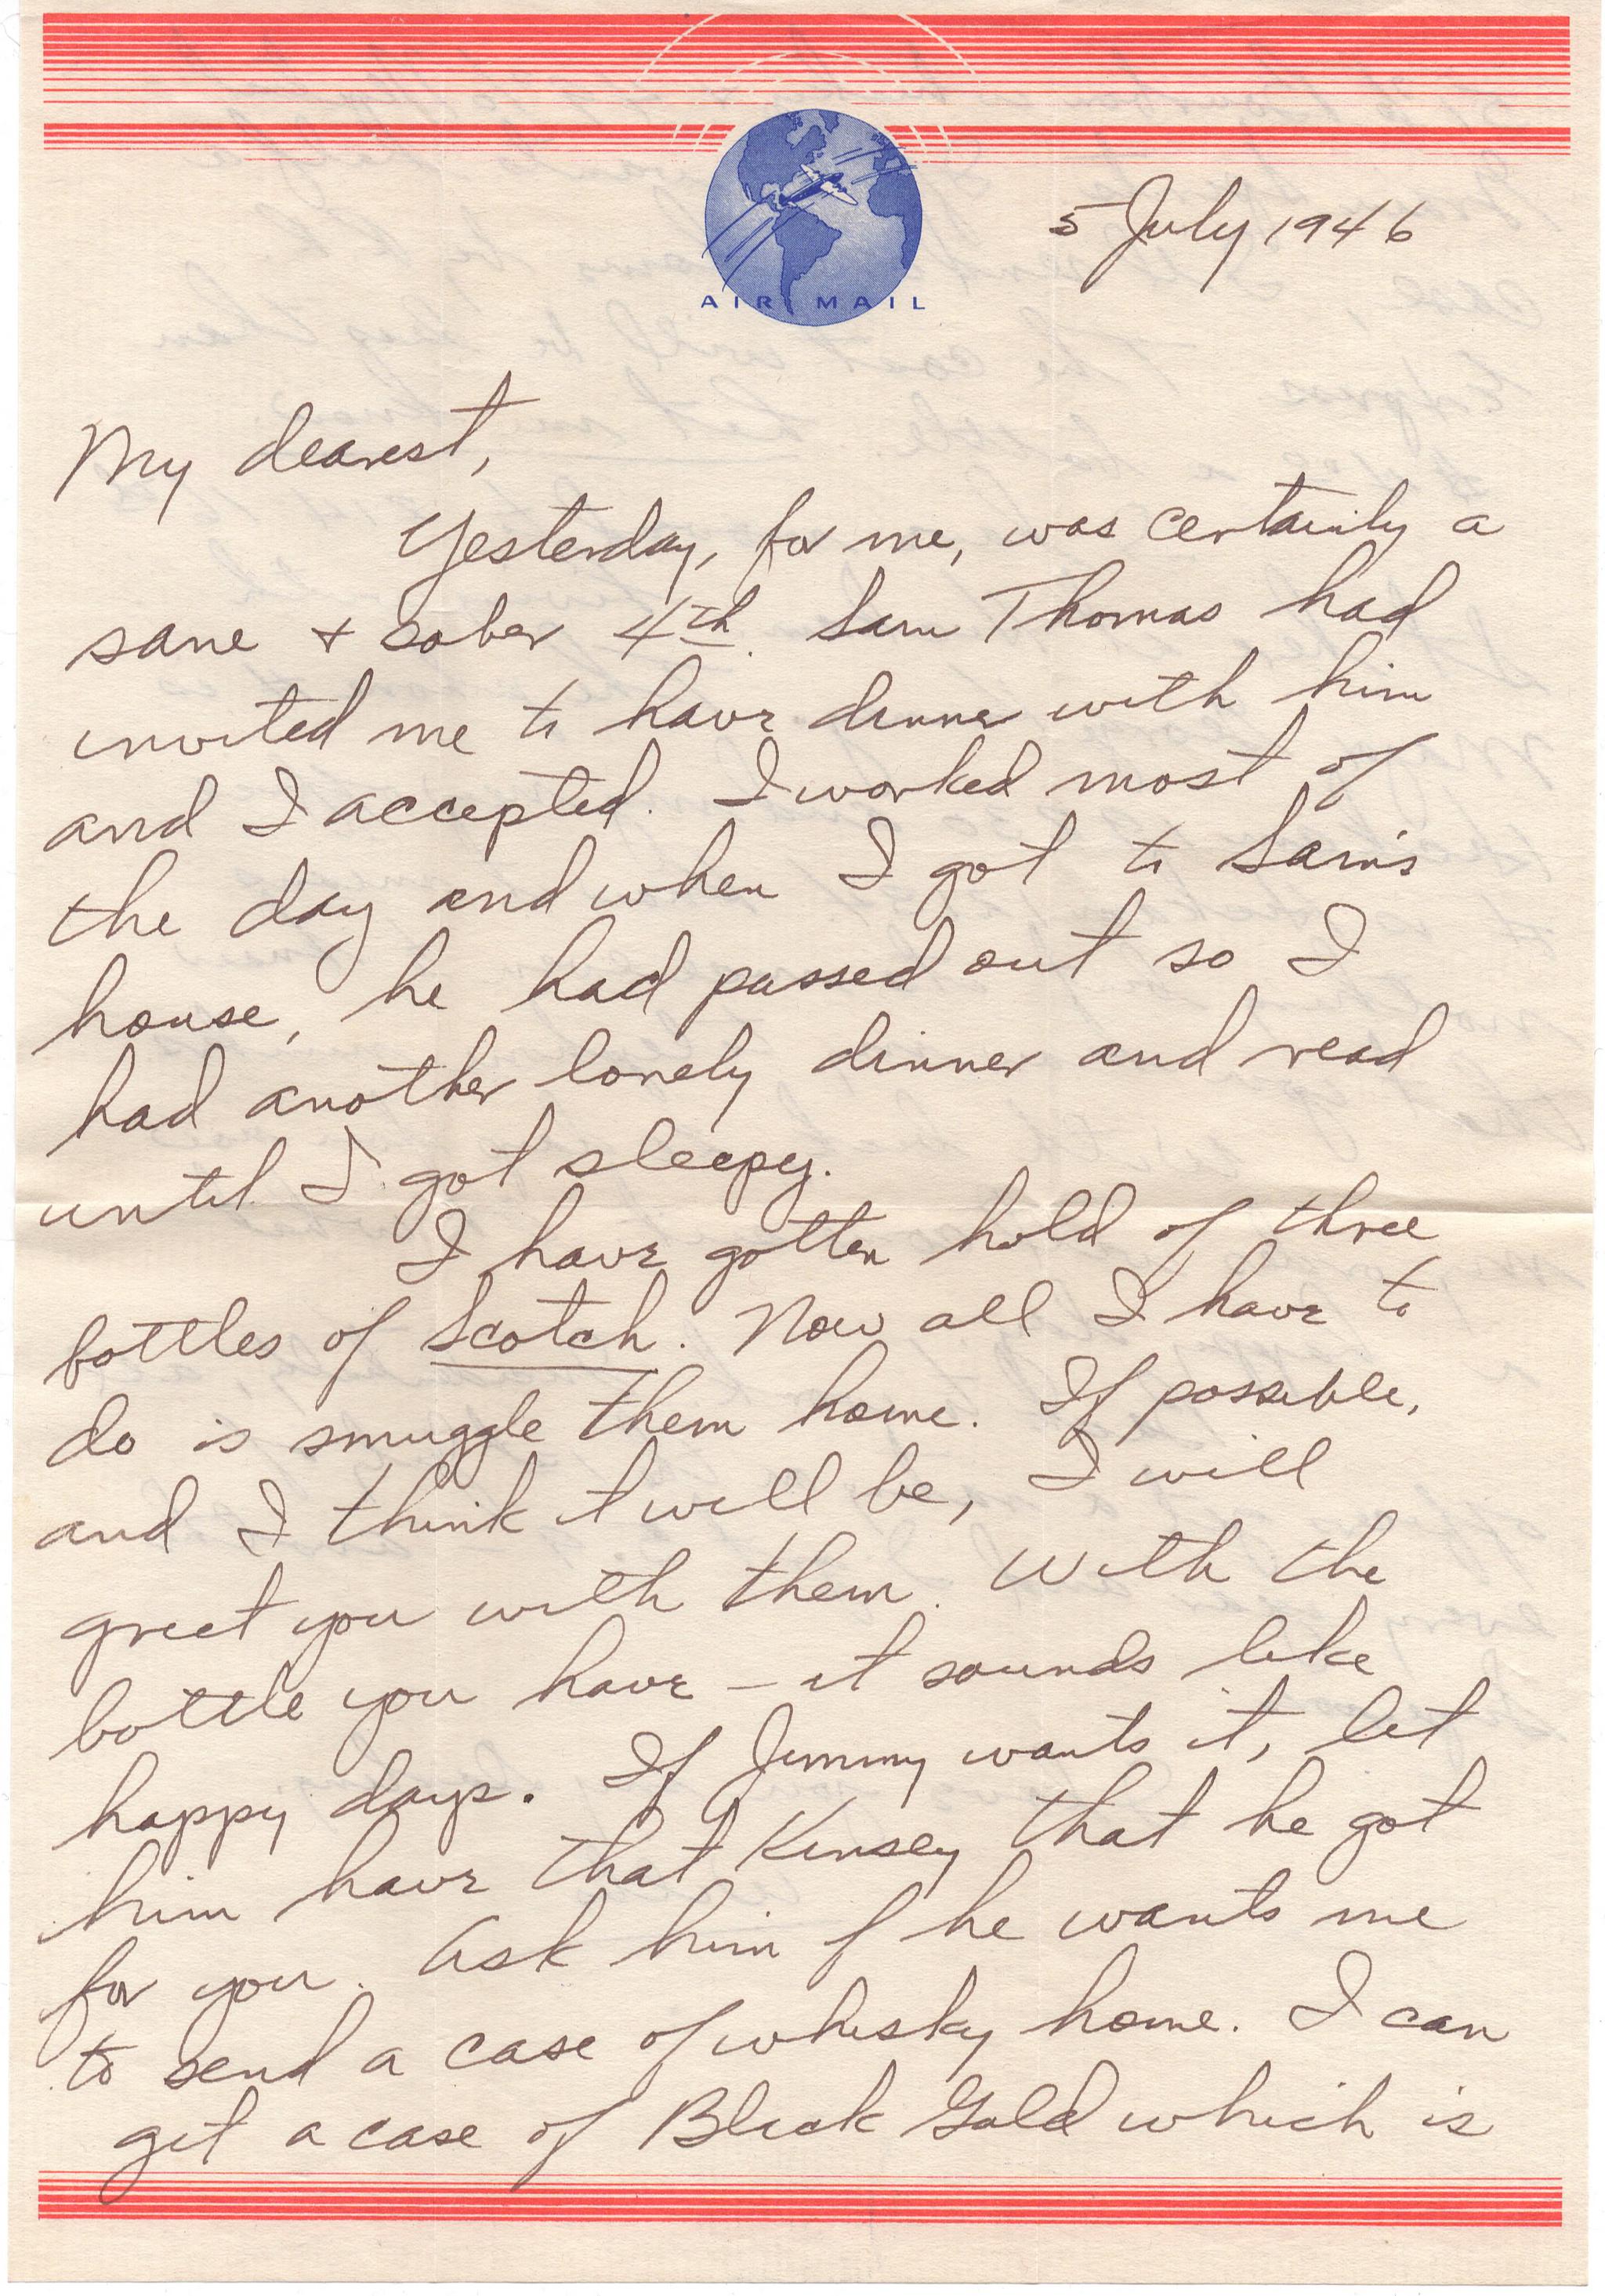 AIR MAIL
5 July 1946
My dearest,
Yesterday, for me, was certainly a
sane + sober 4th. Sam Thomas had
invited me to have dinner with him
and I accepted. I worked most of
the day and when I got to Sam's
house, he had passed out so I
had another lonely dinner and read
until I got sleepy.
I have gotten hold of three
bottles of Scotch. Now all I have to
do is smuggle them home. If possible,
and I think it will be, I will
greet you with them. With the
bottle you have - it sounds like
happy days. If Jimmy wants it, let
him have that Kinsey that he got
for you. Ask him if he wants me
to send a case of whisky home. I can
get a case of Black Gold which is